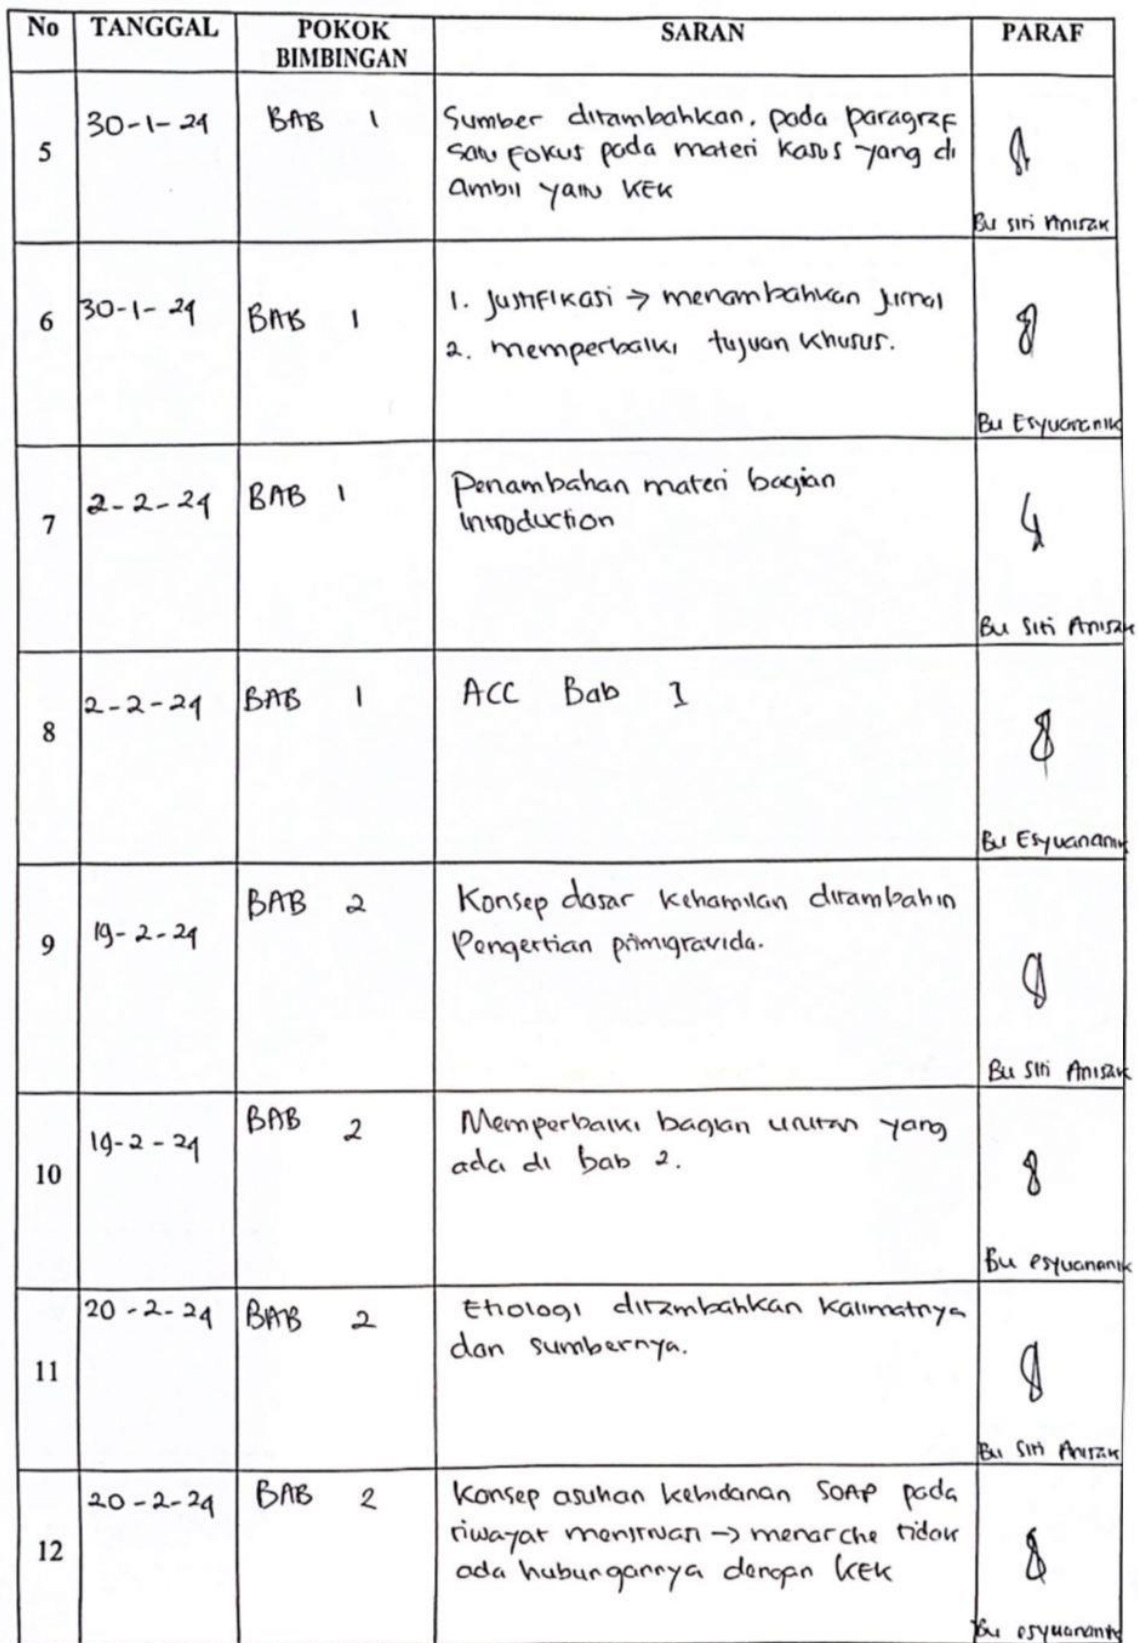 No TANGGAL POKOK BIMBINGAN SARAN PARAF
5 30-1-24 BAB 1 Sumber ditambahkan, pada paragraf
satu fokus pada materi kasus yang di
ambil yaitu KEK
Bu Siti Anisak
6 30-1-24 BAB 1 1. Justifikasi → menambahkan jurnal
2. memperbaiki tujuan khusus.
Bu Esyuananik
7 2-2-24 BAB 1 Penambahan materi bagian
introduction
Bu Siti Anisak
8 2-2-24 BAB 1 ACC Bab 1
Bu Esyuananik
9 19-2-24 BAB 2 Konsep dasar kehamilan ditambahin
Pengertian primigravida.
Bu Siti Anisak
10 19-2-24 BAB 2 Memperbaiki bagian urutan yang
ada di bab 2.
Bu esyuananik
11 20-2-24 BAB 2 Etiologi ditambahkan kalimatnya
dan sumbernya.
Bu Siti Anisak
12 20-2-24 BAB 2 Konsep asuhan kebidanan SOAP pada
riwayat menstruasi → menarche tidak
ada hubungannya dengan KEK
Bu esyuananik